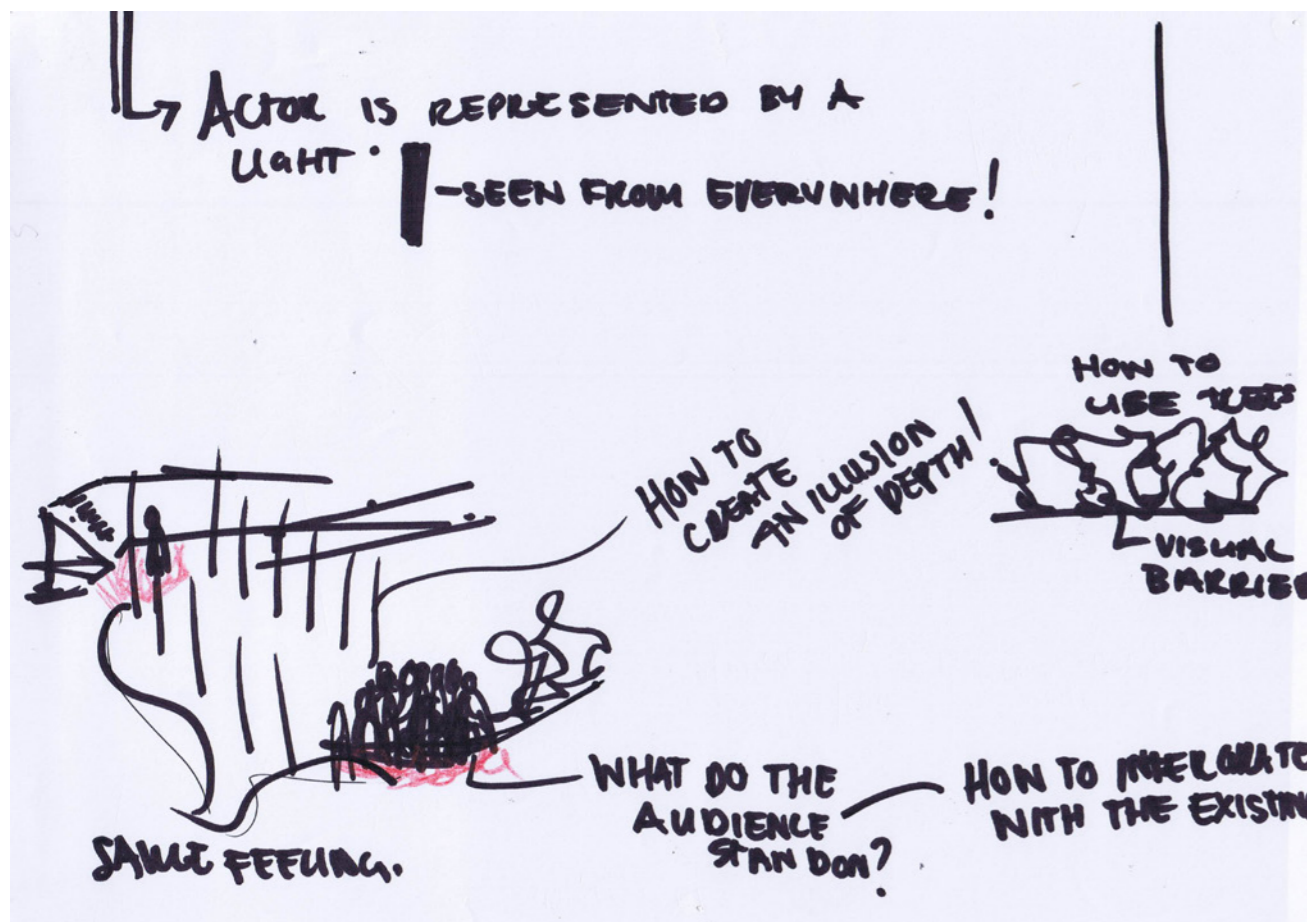 ACTOR IS REPRESENTED BY A
LIGHT.
- SEEN FROM EVERYWHERE!
HOW TO
USE TREES
HOW TO
CREATE
AN ILLUSION
OF DEPTH!
VISUAL
BARRIER
WHAT DO THE
AUDIENCE
STAND ON?
HOW TO INTERGRATE
WITH THE EXISTING
SAME FEELING.